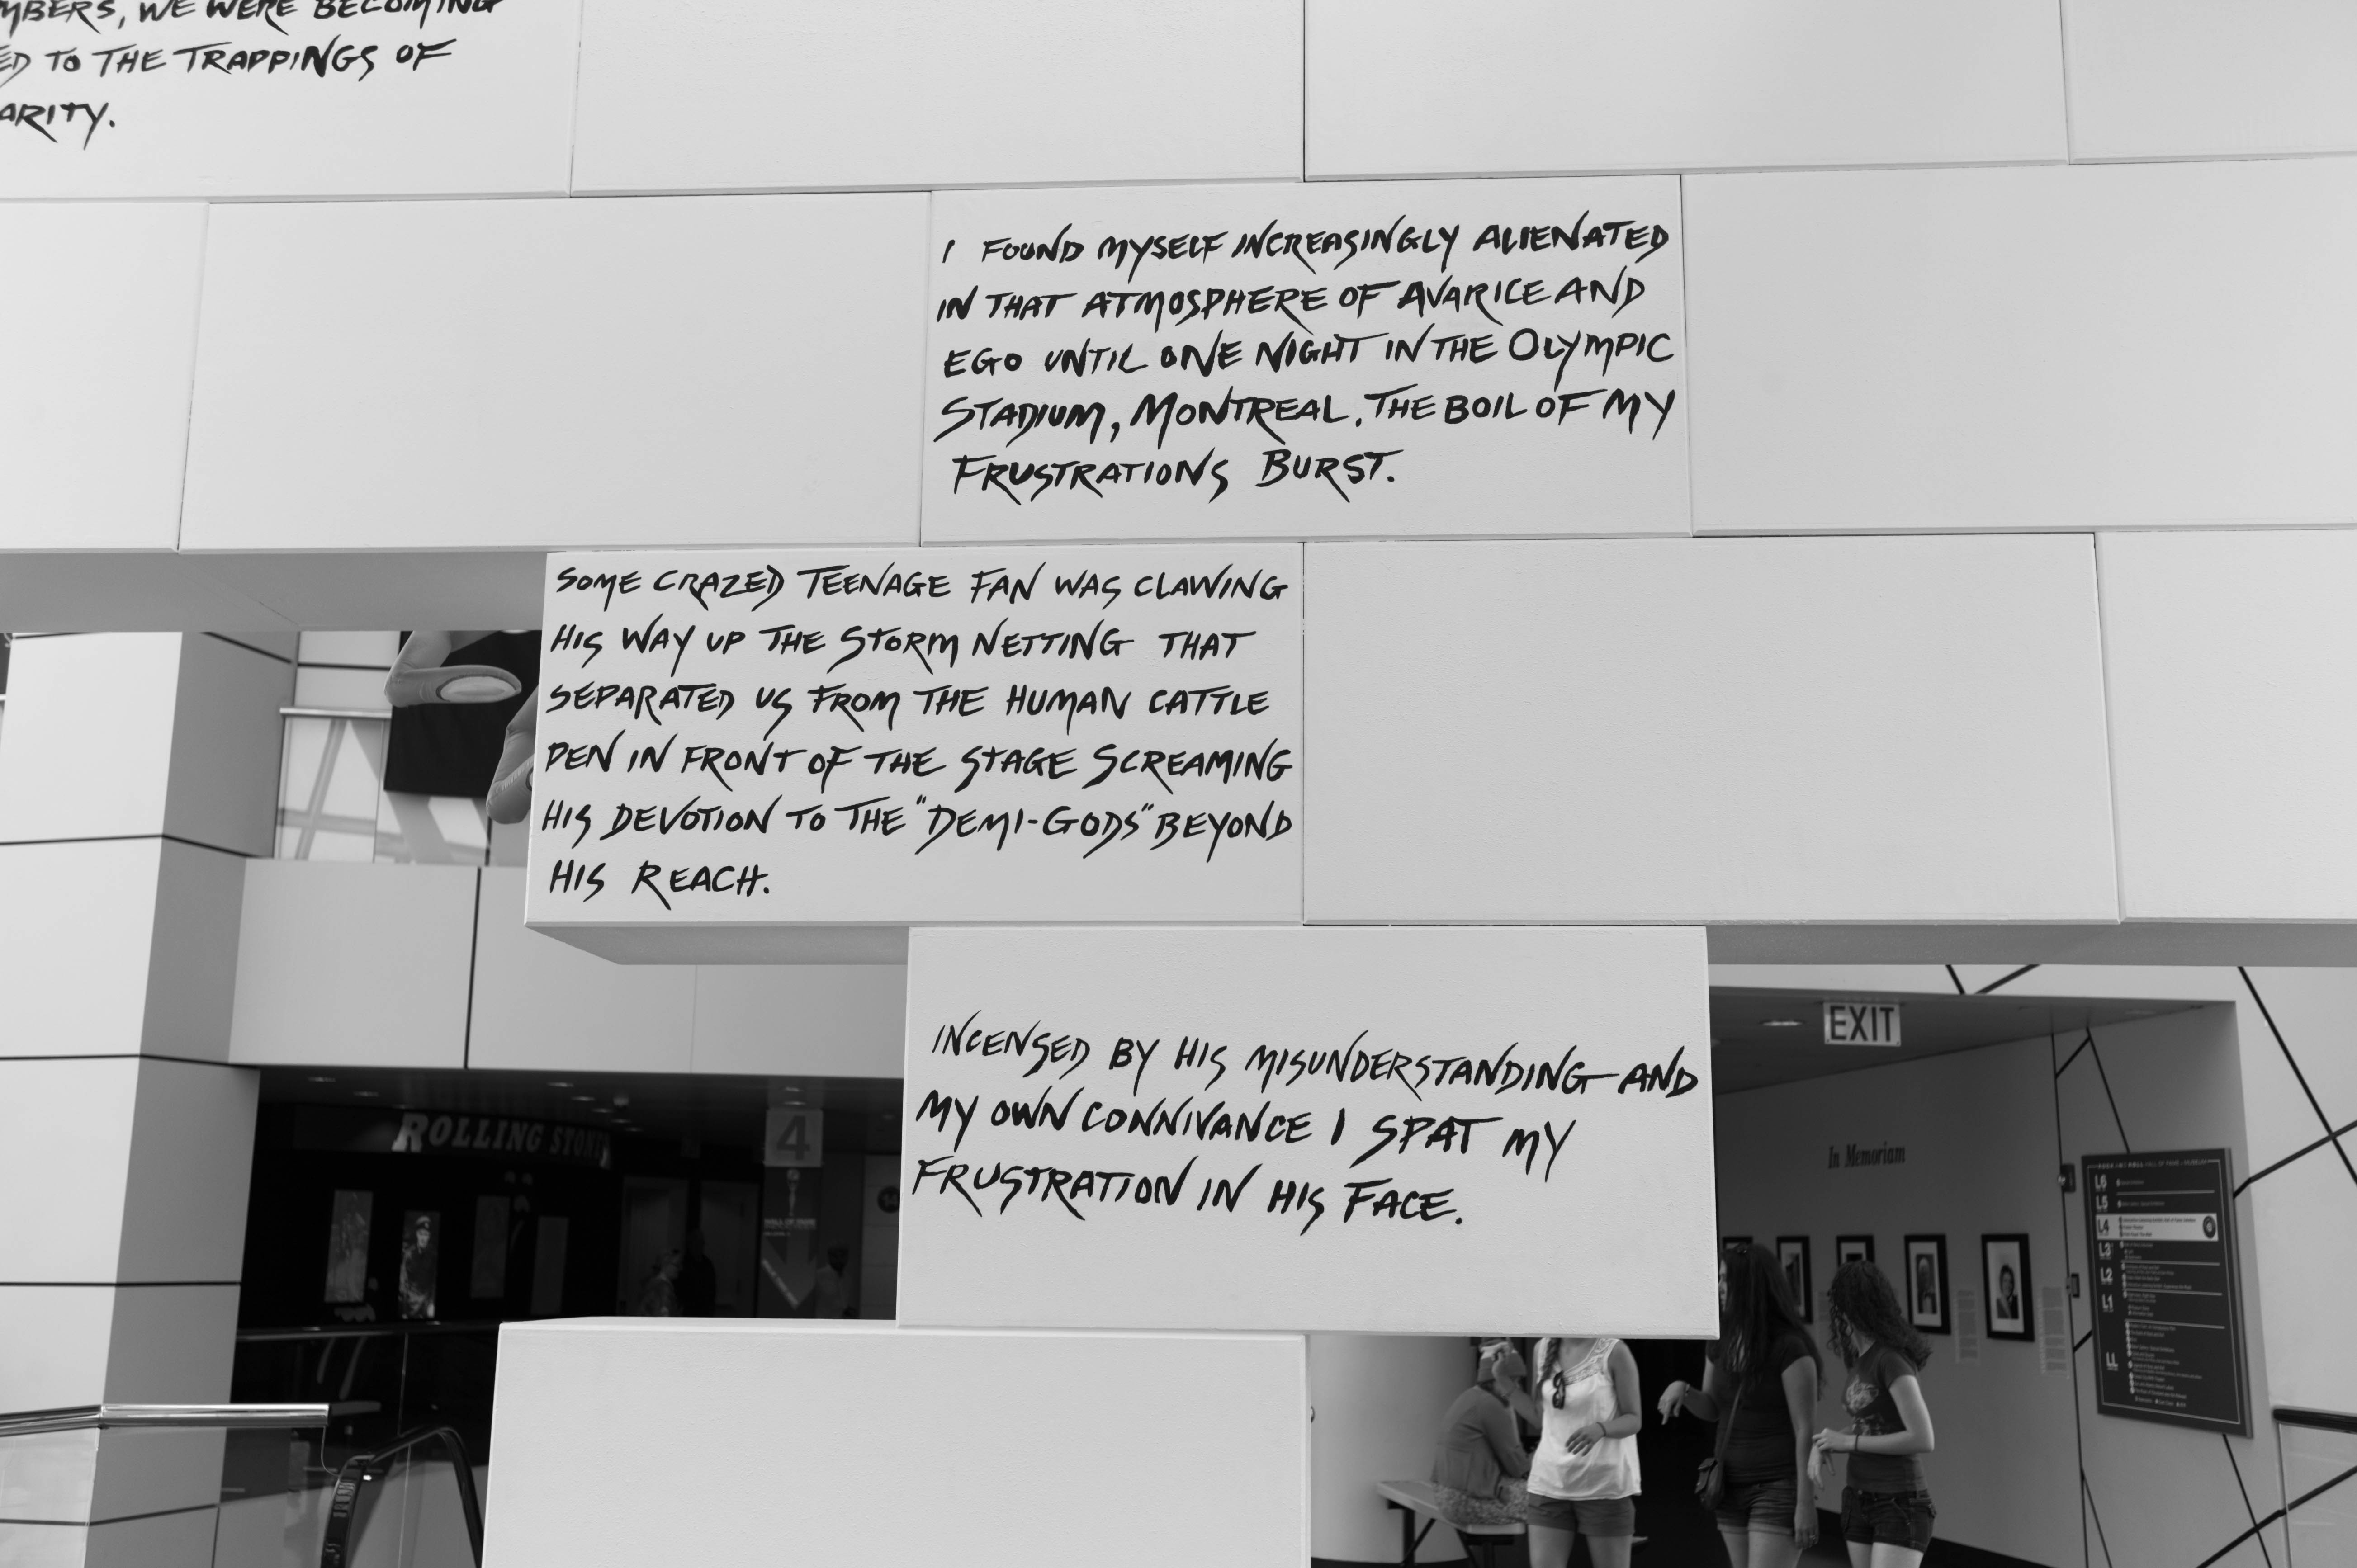 WE WERE BECOMING
TO THE TRAPPINGS OF
I FOUND MYSELF INCREASINGLY ALIENATED
IN THAT ATMOSPHERE OF AVARICE AND
EGO UNTIL ONE NIGHT IN THE OLYMPIC
STADIUM, MONTREAL. THE BOIL OF MY
FRUSTRATIONS BURST.
SOME CRAZED TEENAGE FAN WAS CLAWING
HIS WAY UP THE STORM NETTING THAT
SEPARATED US FROM THE HUMAN CATTLE
PEN IN FRONT OF THE STAGE SCREAMING
HIS DEVOTION TO THE "DEMI-GODS" BEYOND
HIS REACH.
INCENSED BY HIS MISUNDERSTANDING AND
MY OWN CONNIVANCE I SPAT MY
FRUSTRATION IN HIS FACE.
EXIT
ROLLING STONES
4
In Memoriam
L6
L5
L4
L3
L2
L1
LL